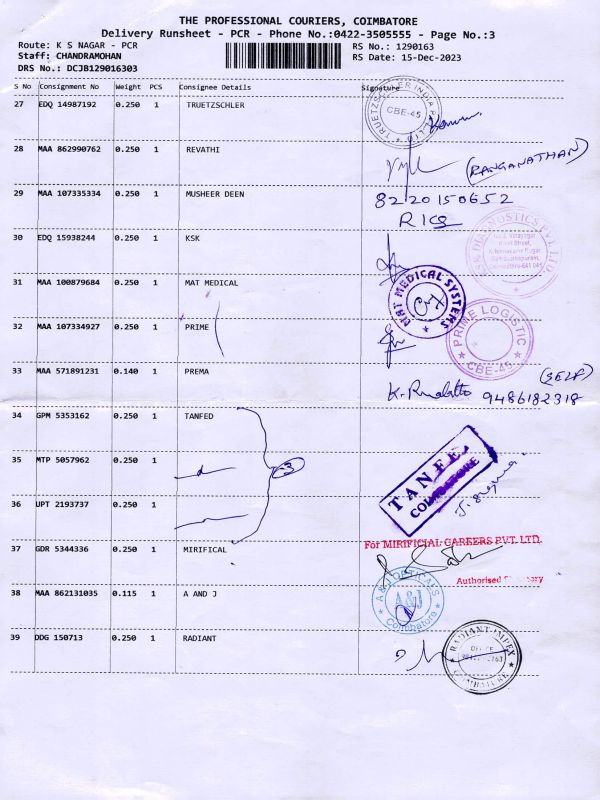 THE PROFESSIONAL COURIERS, COIMBATORE
Delivery Runsheet - PCR - Phone No.:0422-3505555 - Page No.:3
Route: K S NAGAR - PCR
RS No.: 1290163
Staff: CHANDRAMOHAN
RS Date: 15-Dec-2023
DRS No.: DCJB129016303
S No Consignment No Weight PCS Consignee Details Signature
27 EDQ 14987192 0.250 1 TRUETZSCHLER
CBE-45
28 MAA 862990762 0.250 1 REVATHI
(RANGANATHAN)
29 MAA 107335334 0.250 1 MUSHEER DEEN
8220150652
30 EDQ 15938244 0.250 1 KSK
31 MAA 100879684 0.250 1 MAT MEDICAL
MAT MEDICAL SYSTEMS
32 MAA 107334927 0.250 1 PRIME
PRIME LOGISTIC
CBE-45
33 MAA 571891231 0.140 1 PREMA
(SELF)
9486182318
34 GPM 5353162 0.250 1 TANFED
35 MTP 5057962 0.250 1
3
COIMBATORE
36 UPT 2193737 0.250 1
37 GDR 5344336 0.250 1 MIRIFICAL
For MIRIFICIAL CAREERS PVT. LTD.
Authorised
38 MAA 862131035 0.115 1 A AND J
A&J OPTICALS
A&J
Coimbatore
39 DDG 150713 0.250 1 RADIANT
RADIANT IMPEX
COIMBATORE